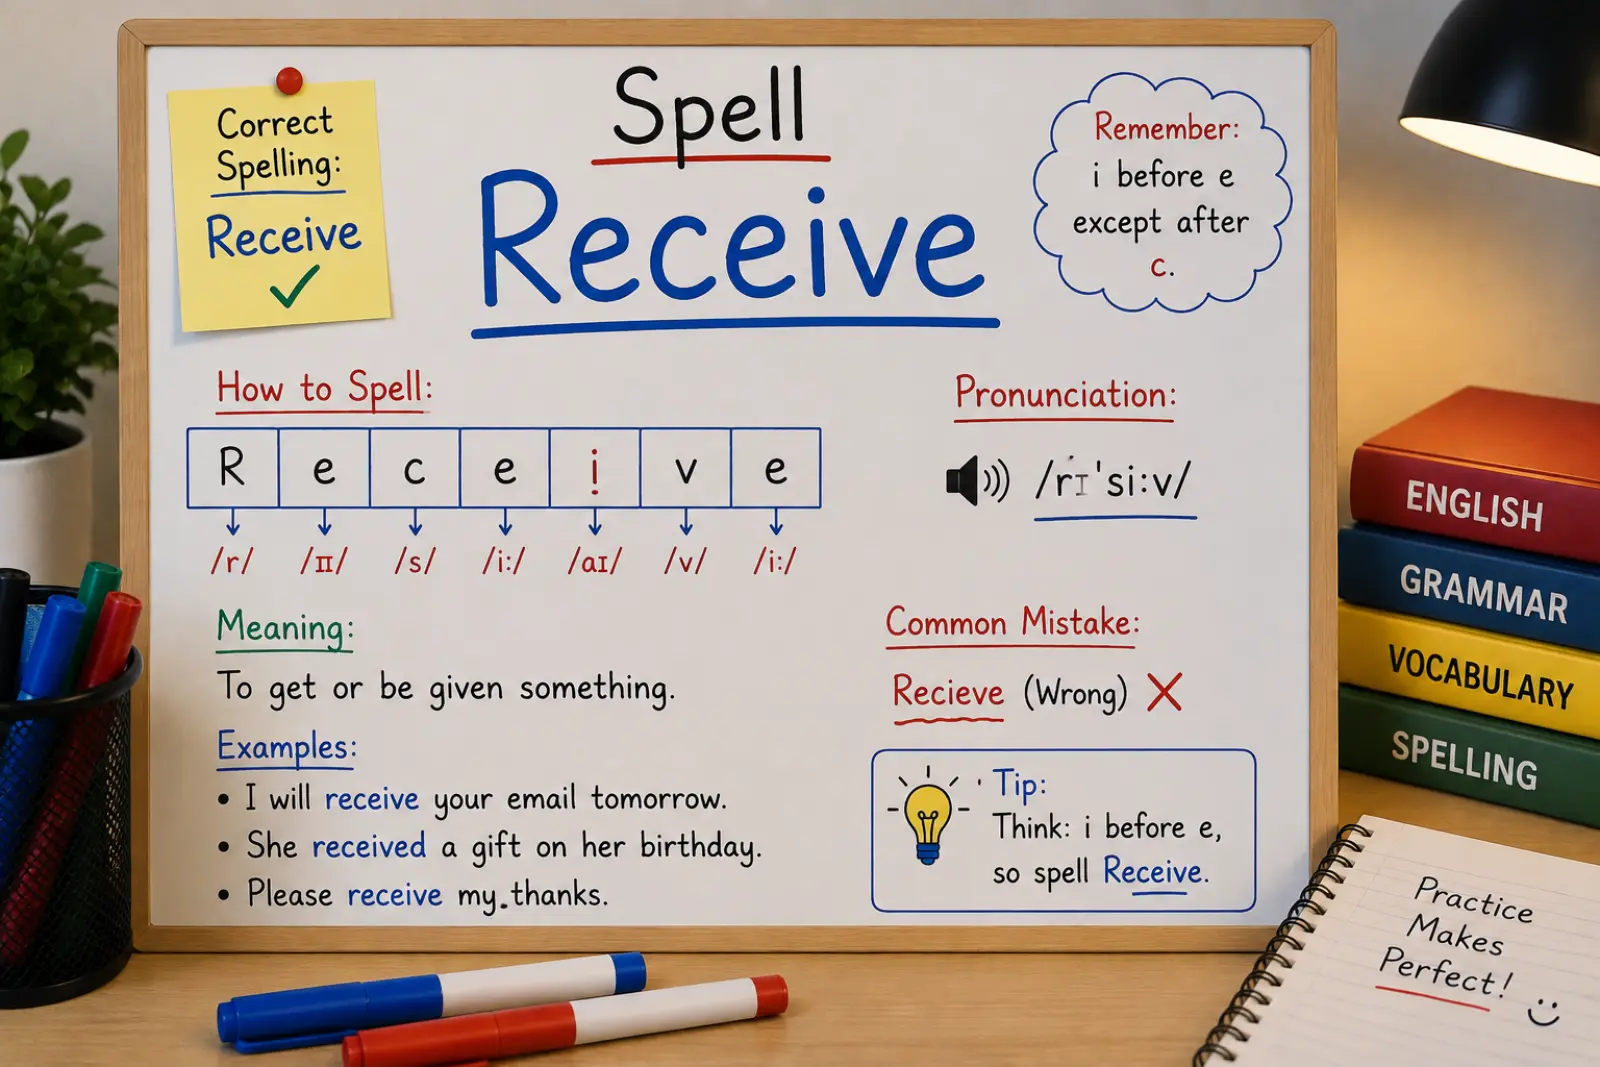 Correct
Spelling:
Receive
Spell
Receive
Remember:
i before e
except after
c.
How to Spell:
R e c e i v e
/r/ /ɪɪ/ /s/ /i:/ /aɪ/ /v/ /i:/
Pronunciation:
/rɪ'si:v/
Meaning:
To get or be given something.
Examples:
• I will receive your email tomorrow.
• She received a gift on her birthday.
• Please receive my.thanks.
Common Mistake:
Recieve (Wrong)
Tip:
Think: i before e,
so spell Receive.
ENGLISH
GRAMMAR
VOCABULARY
SPELLING
Practice
Makes
Perfect!